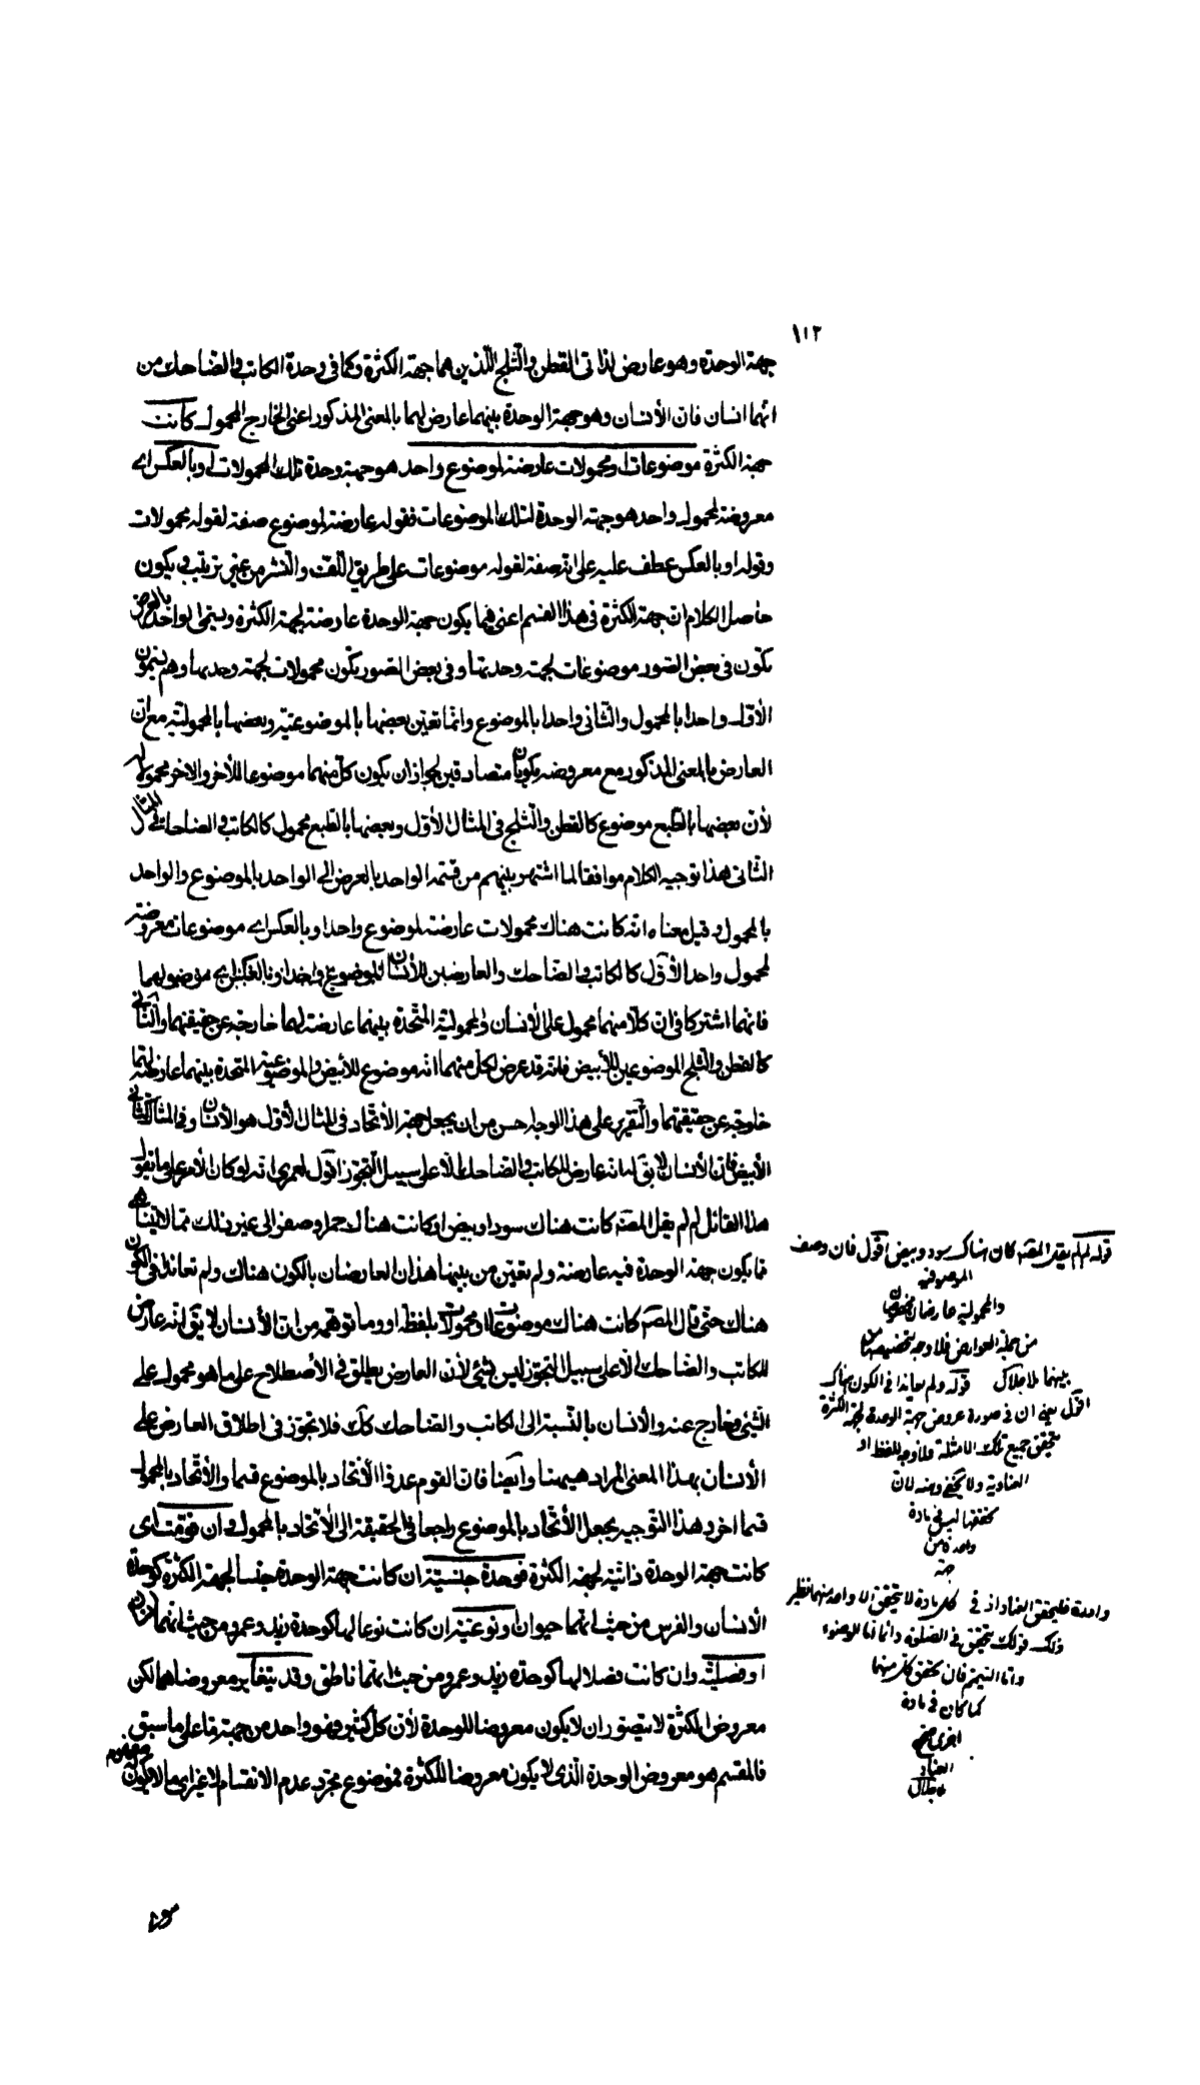 ١١٢
جهة الوحدة وهو عارض لذاتى القطن والثلج اللذين هما جهة الكثرة وكما فى وحدة الكاتب والضاحك من
انهما انسان فان الأنسان وهو جهة الوحدة بينهما عارض لهما بالمعنى المذكور اعنى الخارج المحمول كانت
جهة الكثرة موضوعات او محمولات عارضة لموضوع واحد هو جهة وحدة تلك المحمولات او بالعكس اى
معروضة لمحمول واحد هو جهة الوحدة لتلك الموضوعات فقوله عارضة لموضوع صفة لقوله محمولات
وقوله او بالعكس عطف عليه على انه صفة لقوله موضوعات على طريق اللف والنشر من غير ترتيب ويكون
حاصل الكلام ان جهة الكثرة فى هذا القسم اعنى فيما يكون جهة الوحدة عارضة لجهة الكثرة ويسمى الواحد بالعرض
تكون فى بعض الصور موضوعات لجهة وحدتها وفى بعض الصور تكون محمولات لجهة وحدتها وهم يسمون
الأول واحدا بالمحمول والثانى واحدا بالموضوع وانما تعين بعضها بالموضوعية وبعضها بالمحمولية مع ان
العارض بالمعنى المذكور مع معروضه يكونان متصادقين لجواز ان يكون كل منهما موضوعا للأخر والاخر محمولا له
لأن بعضها بالطبع موضوع كالقطن والثلج فى المثال الأول وبعضها بالطبع محمول كالكاتب والضاحك فى المثال
الثانى هذا توجيه الكلام موافقا لما اشتهر بينهم من قسمة الواحد بالعرض الى الواحد بالموضوع والواحد
بالمحمول وقيل معناه انه كانت هناك محمولات عارضة لموضوع واحد او بالعكس اى موضوعات معروضة
لمحمول واحد الأول كالكاتب والضاحك والعارضين للأنسان لموضوع واحد او بالعكس اى
فانهما اشتركا فى ان كلا منهما محمول على الأنسان والمحمولية المتحدة بينهما عارضة لهما خارجة عن حقيقتهما والثانى
كالقطن والثلج الموضوعين للأبيض فانه قد عرض لكل منهما انه موضوع للأبيض والموضوعية المتحدة بينهما عارضة لهما
خارجة عن حقيقتهما والتقرير على هذا الوجه احسن من ان يجعل جهة الأتحاد فى المثال الأول هو الأنسان وفى المثال الثانى
الأبيض فان الأنسان لا يق له انه عارض للكاتب والضاحك الا على سبيل التجوز اقول لعمرى انه لو كان الأمر على ما تقول
هذا القائل لم لم يقل المصه كانت هناك سود او بيض او كانت هناك حمر او صفر الى غير ذلك مما لا يتناهى
مما يكون جهة الوحدة فيه عارضة ولم تعين من بينها هذان العارضان بالكون هناك ولم تعاندا فى الكون
هناك حتى قال المصه كانت هناك موضوعات او محمولات بلفظة او وما توهمه من ان الأنسان لا يق انه عارض
للكاتب والضاحك الا على سبيل التجوز ليس بشئ لأن العارض يطلق فى الأصطلاح على ما هو محمول على
الشئ وخارج عنه والانسان بالنسبة الى الكاتب والضاحك كك فلا تجوز فى اطلاق العارض على
الأنسان بهذا المعنى المراد هيهنا وايضا فان القوم عدوا الأتحاد بالموضوع قسما والأتحاد بالمحمول
قسما اخر وهذا التوجيه يجعل الأتحاد بالموضوع راجعا فى الحقيقة الى الأتحاد بالمحمول وان قومت اى
كانت جهة الوحدة ذاتية لجهة الكثرة فوحدة جنسية ان كانت جهة الوحدة جنسا لجهة الكثرة كوحدة
الأنسان والفرس من حيث انهما حيوان او نوعية ان كانت نوعا لها كوحدة زيد وعمرو من حيث انهما انسان
او فصلية وان كانت فصلا لها كوحدة زيد وعمرو من حيث انهما ناطق وقد يتغاير معروضاهما لكن
معروض الكثرة لا يتصور ان لا يكون معروضا للوحدة لأن كل كثير فهو واحد من جهة ما على ما سبق
فالمقسم هو معروض الوحدة الذى لا يكون معروضا للكثرة فموضوع مجرد عدم الانقسام لا غير اى ما لا يكون
قوله لم لم يقل المصه كان هناك سود وبيض اقول فان وصف
الموصوفية
والمحمولية عارضان
من جملة العوارض فلا وجه لتخصيصهما من
بينهما قوله ولم يعاندا فى الكون هناك
اقول يعنى ان فى صورة عروض جهة الوحدة لجهة الكثرة
يتحقق جميع تلك الامثلة فلا وجه للفظ او
العنادية ولا يخفى وهنه لان
تحققها ليس فى مادة
واحدة فليتحقق العناد اذ فى كل مادة لا يتحقق الا واحد منهما نظير
ذلك قولك يتحقق فى الصلوة اما الوضوء
واما التيمم فان تحقق كل منهما
كما كان فى مادة
اخرى صح
العناد